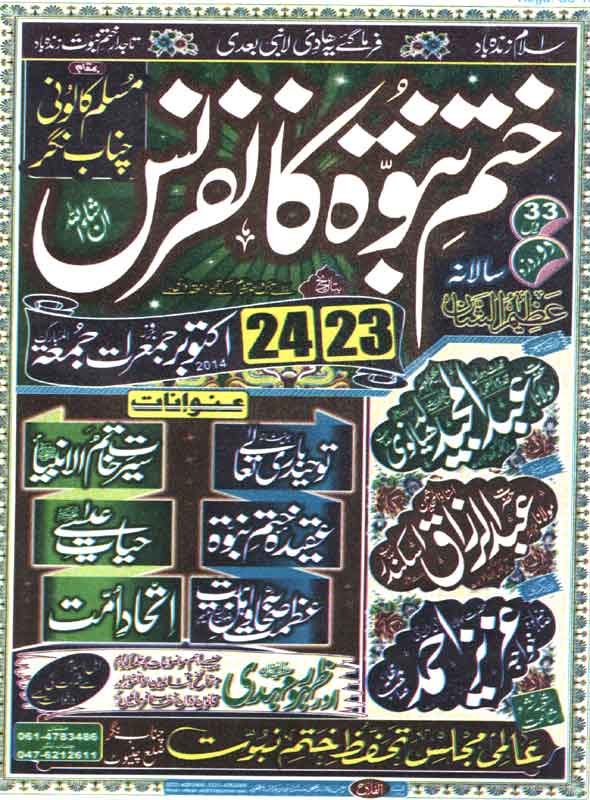 اسلام زندہ باد
فرما گئے یہ ھادی لانبی بعدی
تاجدار ختم نبوت زندہ باد
بمقام
مسلم کالونی
چناب نگر
ختم نبوۃ کانفرنس
ان شاءاللہ
33 ویں
دو روزہ
سالانہ
عظیم الشان
بتاریخ
23 24 اکتوبر جمعرات جمعۃ المبارک
2014
عنوانات
توحید باری تعالیٰ
سیرت خاتم الانبیاء
عقیدہ ختم نبوۃ
حیات عیسیٰ
عظمت صحابہ و اہل بیت
اتحاد امت
اور ظہور مہدی
عبدالمجید لدھیانوی
مولانا
عبدالرزاق اسکندر
عزیز احمد
عالمی مجلس تحفظ ختم نبوت
چناب نگر
ضلع چنیوٹ
061-4783486
047-6212611